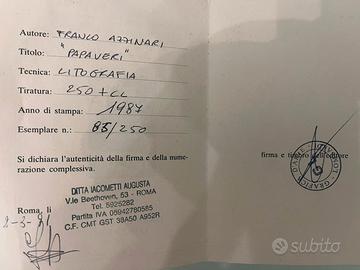 Autore: FRANCO AZZINARI
Titolo: "PAPAVERI"
Tecnica: LITOGRAFIA
Tiratura: 250 + CL
Anno di stampa: 1987
Esemplare n.: 85/250
Si dichiara l'autenticità della firma e della nume-
razione complessiva.
firma e timbro dell'editore
DITTA IACOMETTI AUGUSTA
V.le Beethoven, 53 - ROMA
Tel. 5925282
Partita IVA 05942780585
C.F. CMT GST 38A50 A952R
Roma, li
subito